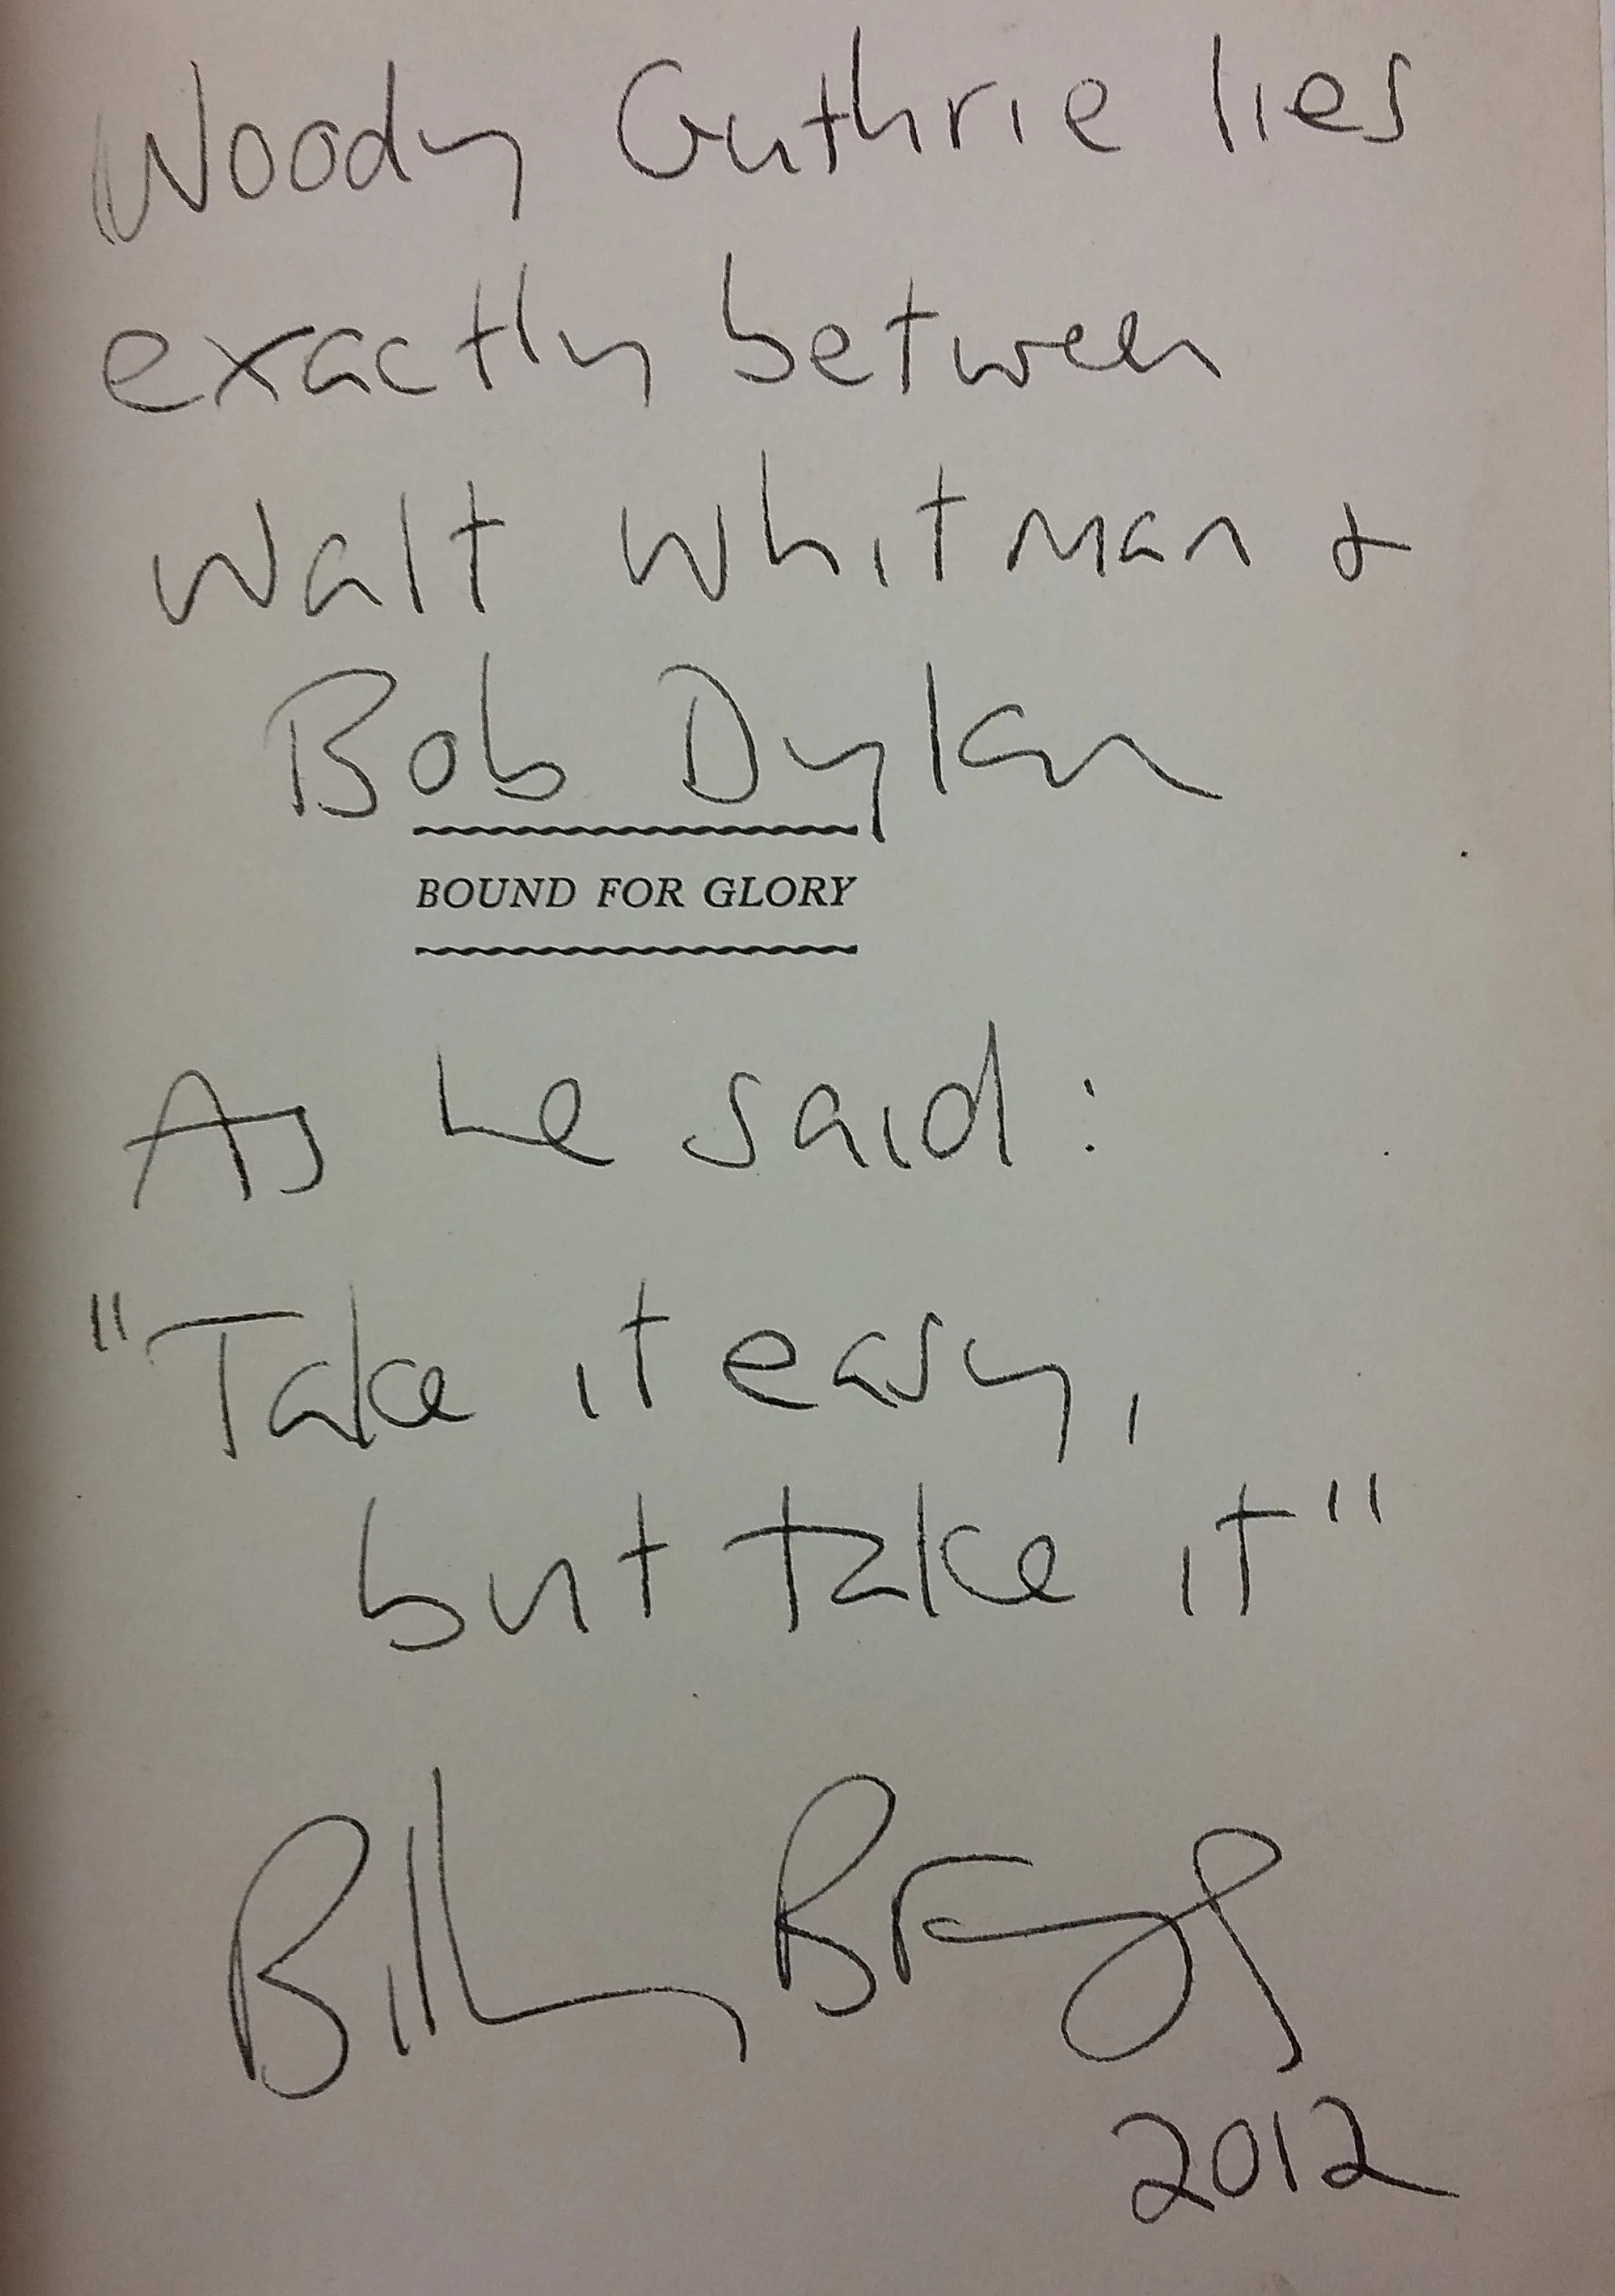 Woody Guthrie lies
exactly between
Walt Whitman &
Bob Dylan
BOUND FOR GLORY
As he said:
"Take it easy,
but take it"
Billy Bragg
2012